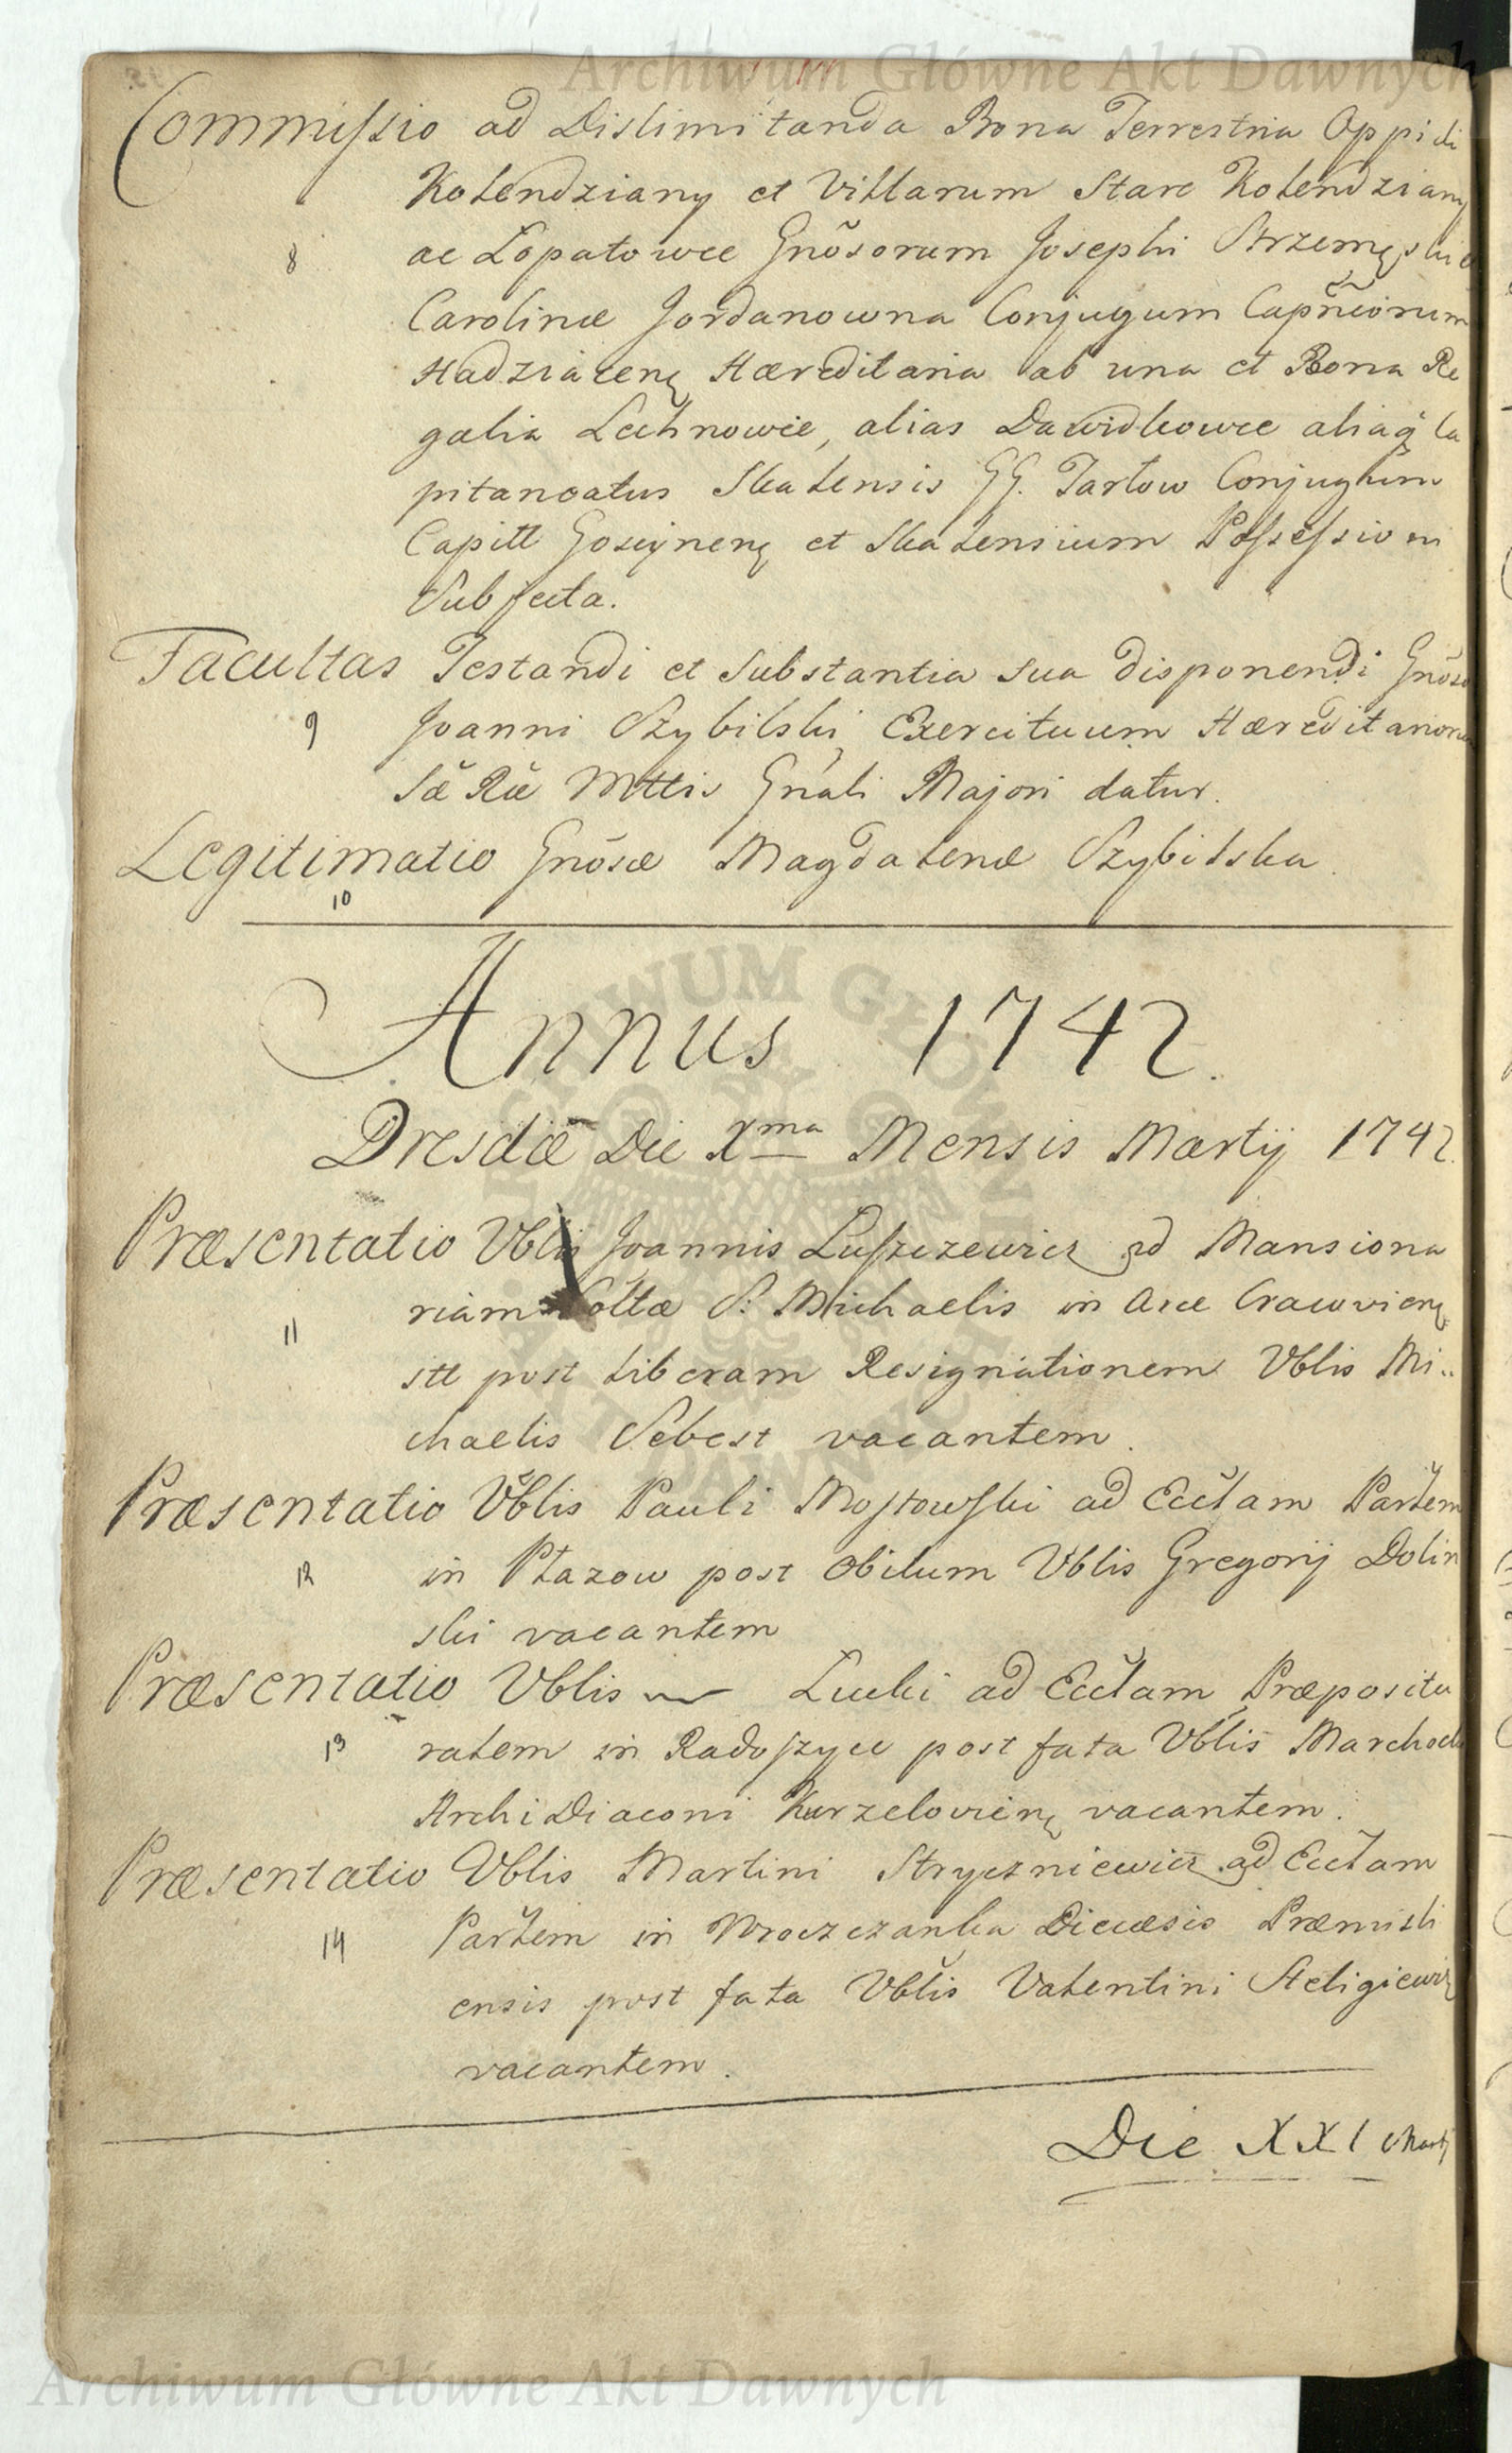 Archiwum Główne Akt Dawnych
Commissio ad Dislimitanda Bona Terrestria Oppidi
Kolendziany et Villarum Stare Kolendziany
8 ac Lopatowce Gnõsorum Josephi Strzemęski et
Carolinæ Jordanowna Conjugum Capñeorum
Hadziacenę Hæreditaria ab una et Bona Re
galia Lechnowce, alias Dawidkowce aliaq̃ Ca
pitaneatus Skalensis GG. Tarlow Conjugum
Capitt Goscynenę et Skalensium Possessioni
Subjecta.
Facultas Testandi et Substantia sua disponendi Gnõso
9 Joanni Szybilski Exercituum Hæreditariorum
Sæ Ræ Mttis Gnãli Majori datur.
Legitimatio Gnõsæ Magdalenæ Szybilska.
10
Annus 1742.
Dresdæ Die Xma Mensis Martij 1742.
Præsentatio Vblis Joannis Luszczewicz ad Mansiona
11 riam Colltæ S: Michaelis in Arce Cracovienę
itt post liberam Resignationem Vblis Mi..
chaelis Sebest vacantem.
Præsentatio Vblis Pauli Mostowski ad Ecclam Parlem
12 in Płazow post obitum Vblis Gregorij Dolin
ski vacantem
Præsentatio Vblis Lucki ad Ecclam Præpositu
13 ralem in Radoszyce post fata Vblis Marchocki
ArchiDiaconi Kurzelovienę vacantem.
Præsentatio Vblis Martini Stryczniewicz ad Ecclam
14 Parlem in Wroczanka Diecæsis Præmisli
ensis post fata Vblis Valentini Steligiewicz
vacantem.
Die XXI Martij
Archiwum Główne Akt Dawnych